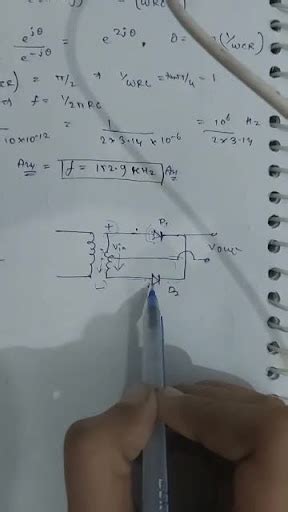 (WRC)
e^jθ / e^-jθ = e^2jθ, θ = (1/WCR)
CR) = π/2 → 1/WRC = tan π/4 = 1
f = 1/2πRC
10×10^-12 = 1 / 2×3.14×10^-6 = 10^6 / 2×3.14 Hz
Ans f = 152.9 KHz Ans
+ D1
Vin Vout
-
D2